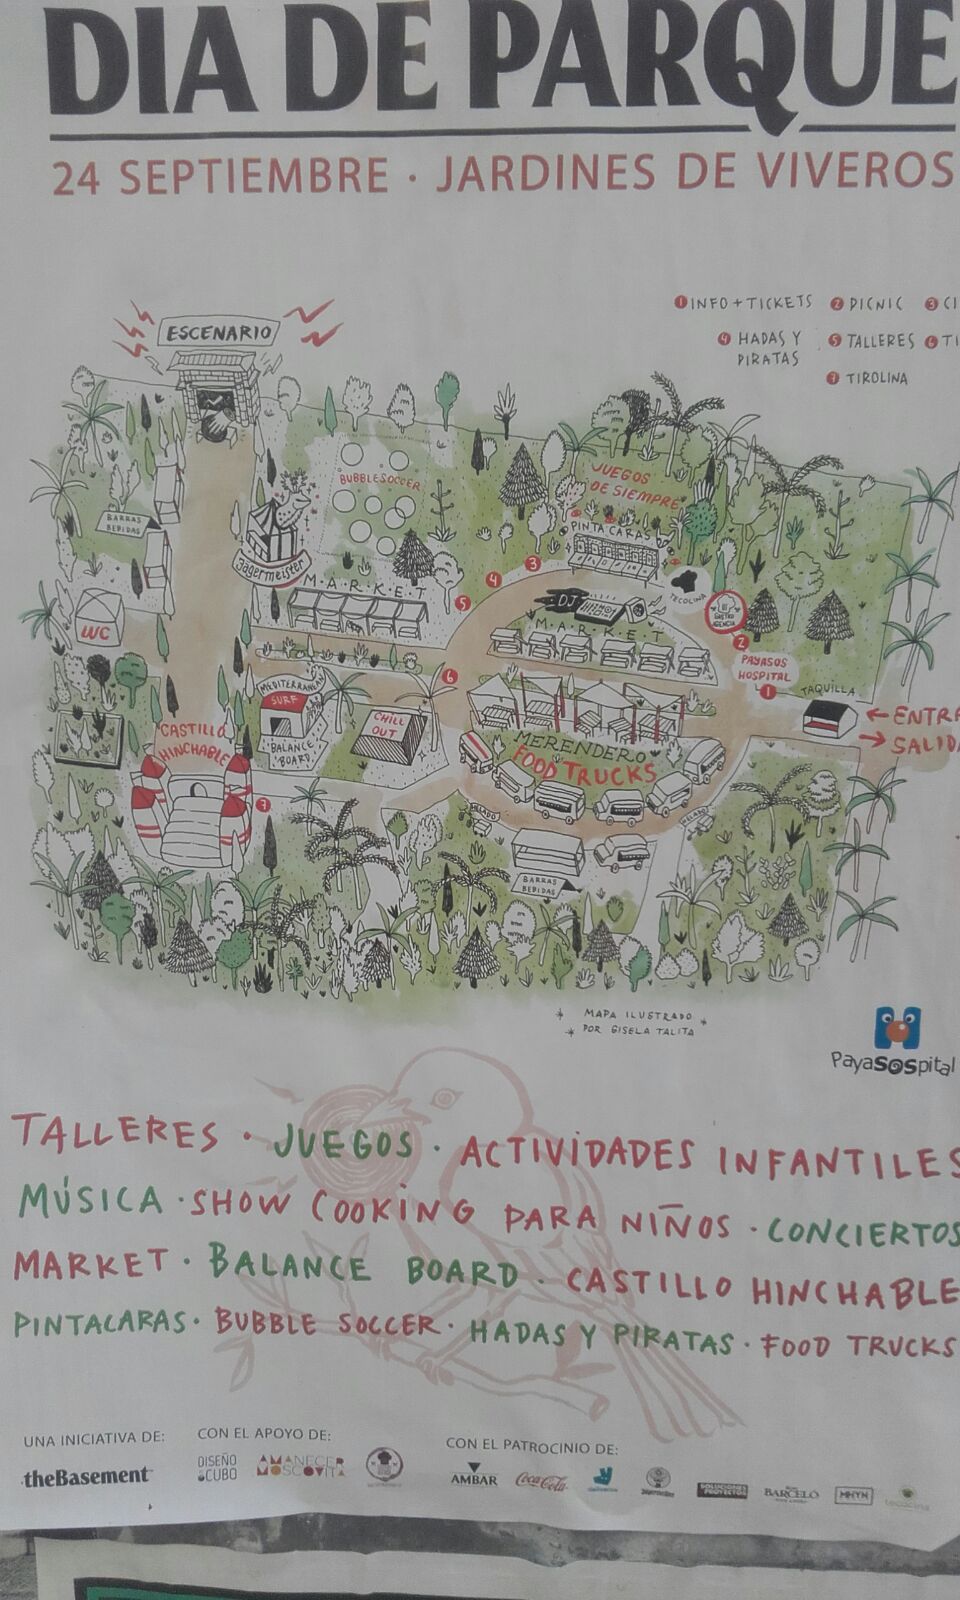 DIA DE PARQUE
24 SEPTIEMBRE · JARDINES DE VIVEROS
1 INFO + TICKETS 2 PICNIC 3 CI
4 HADAS Y PIRATAS 5 TALLERES 6 TI
7 TIROLINA
ESCENARIO
BUBBLE SOCCER
JUEGOS
DE SIEMPRE
PINTACARAS
BARRAS
BEBIDAS
Jägermeister
MARKET
3
4
5
DJ
TECOLINA
MARKET
2
WC
PAYASOS
HOSPITAL
1
6
TAQUILLA
MEDITERRANEAN
SURF
BALANCE
BOARD
CHILL
OUT
← ENTRA
→ SALID
CASTILLO
HINCHABLE
MERENDERO
FOOD TRUCKS
7
HELADO
HELADO
BARRAS
BEBIDAS
MAPA ILUSTRADO
POR GISELA TALITA
PayaSOSpital
TALLERES · JUEGOS · ACTIVIDADES INFANTILES
MÚSICA · SHOW COOKING PARA NIÑOS · CONCIERTOS
MARKET · BALANCE BOARD · CASTILLO HINCHABLE
PINTACARAS · BUBBLE SOCCER · HADAS Y PIRATAS · FOOD TRUCKS
UNA INICIATIVA DE:
theBasement
CON EL APOYO DE:
DISEÑO
CUBO
AMANECER
MOSCOVITA
CON EL PATROCINIO DE:
AMBAR
Coca-Cola
SOLUCIONES
PROYECTOS
BARCELO